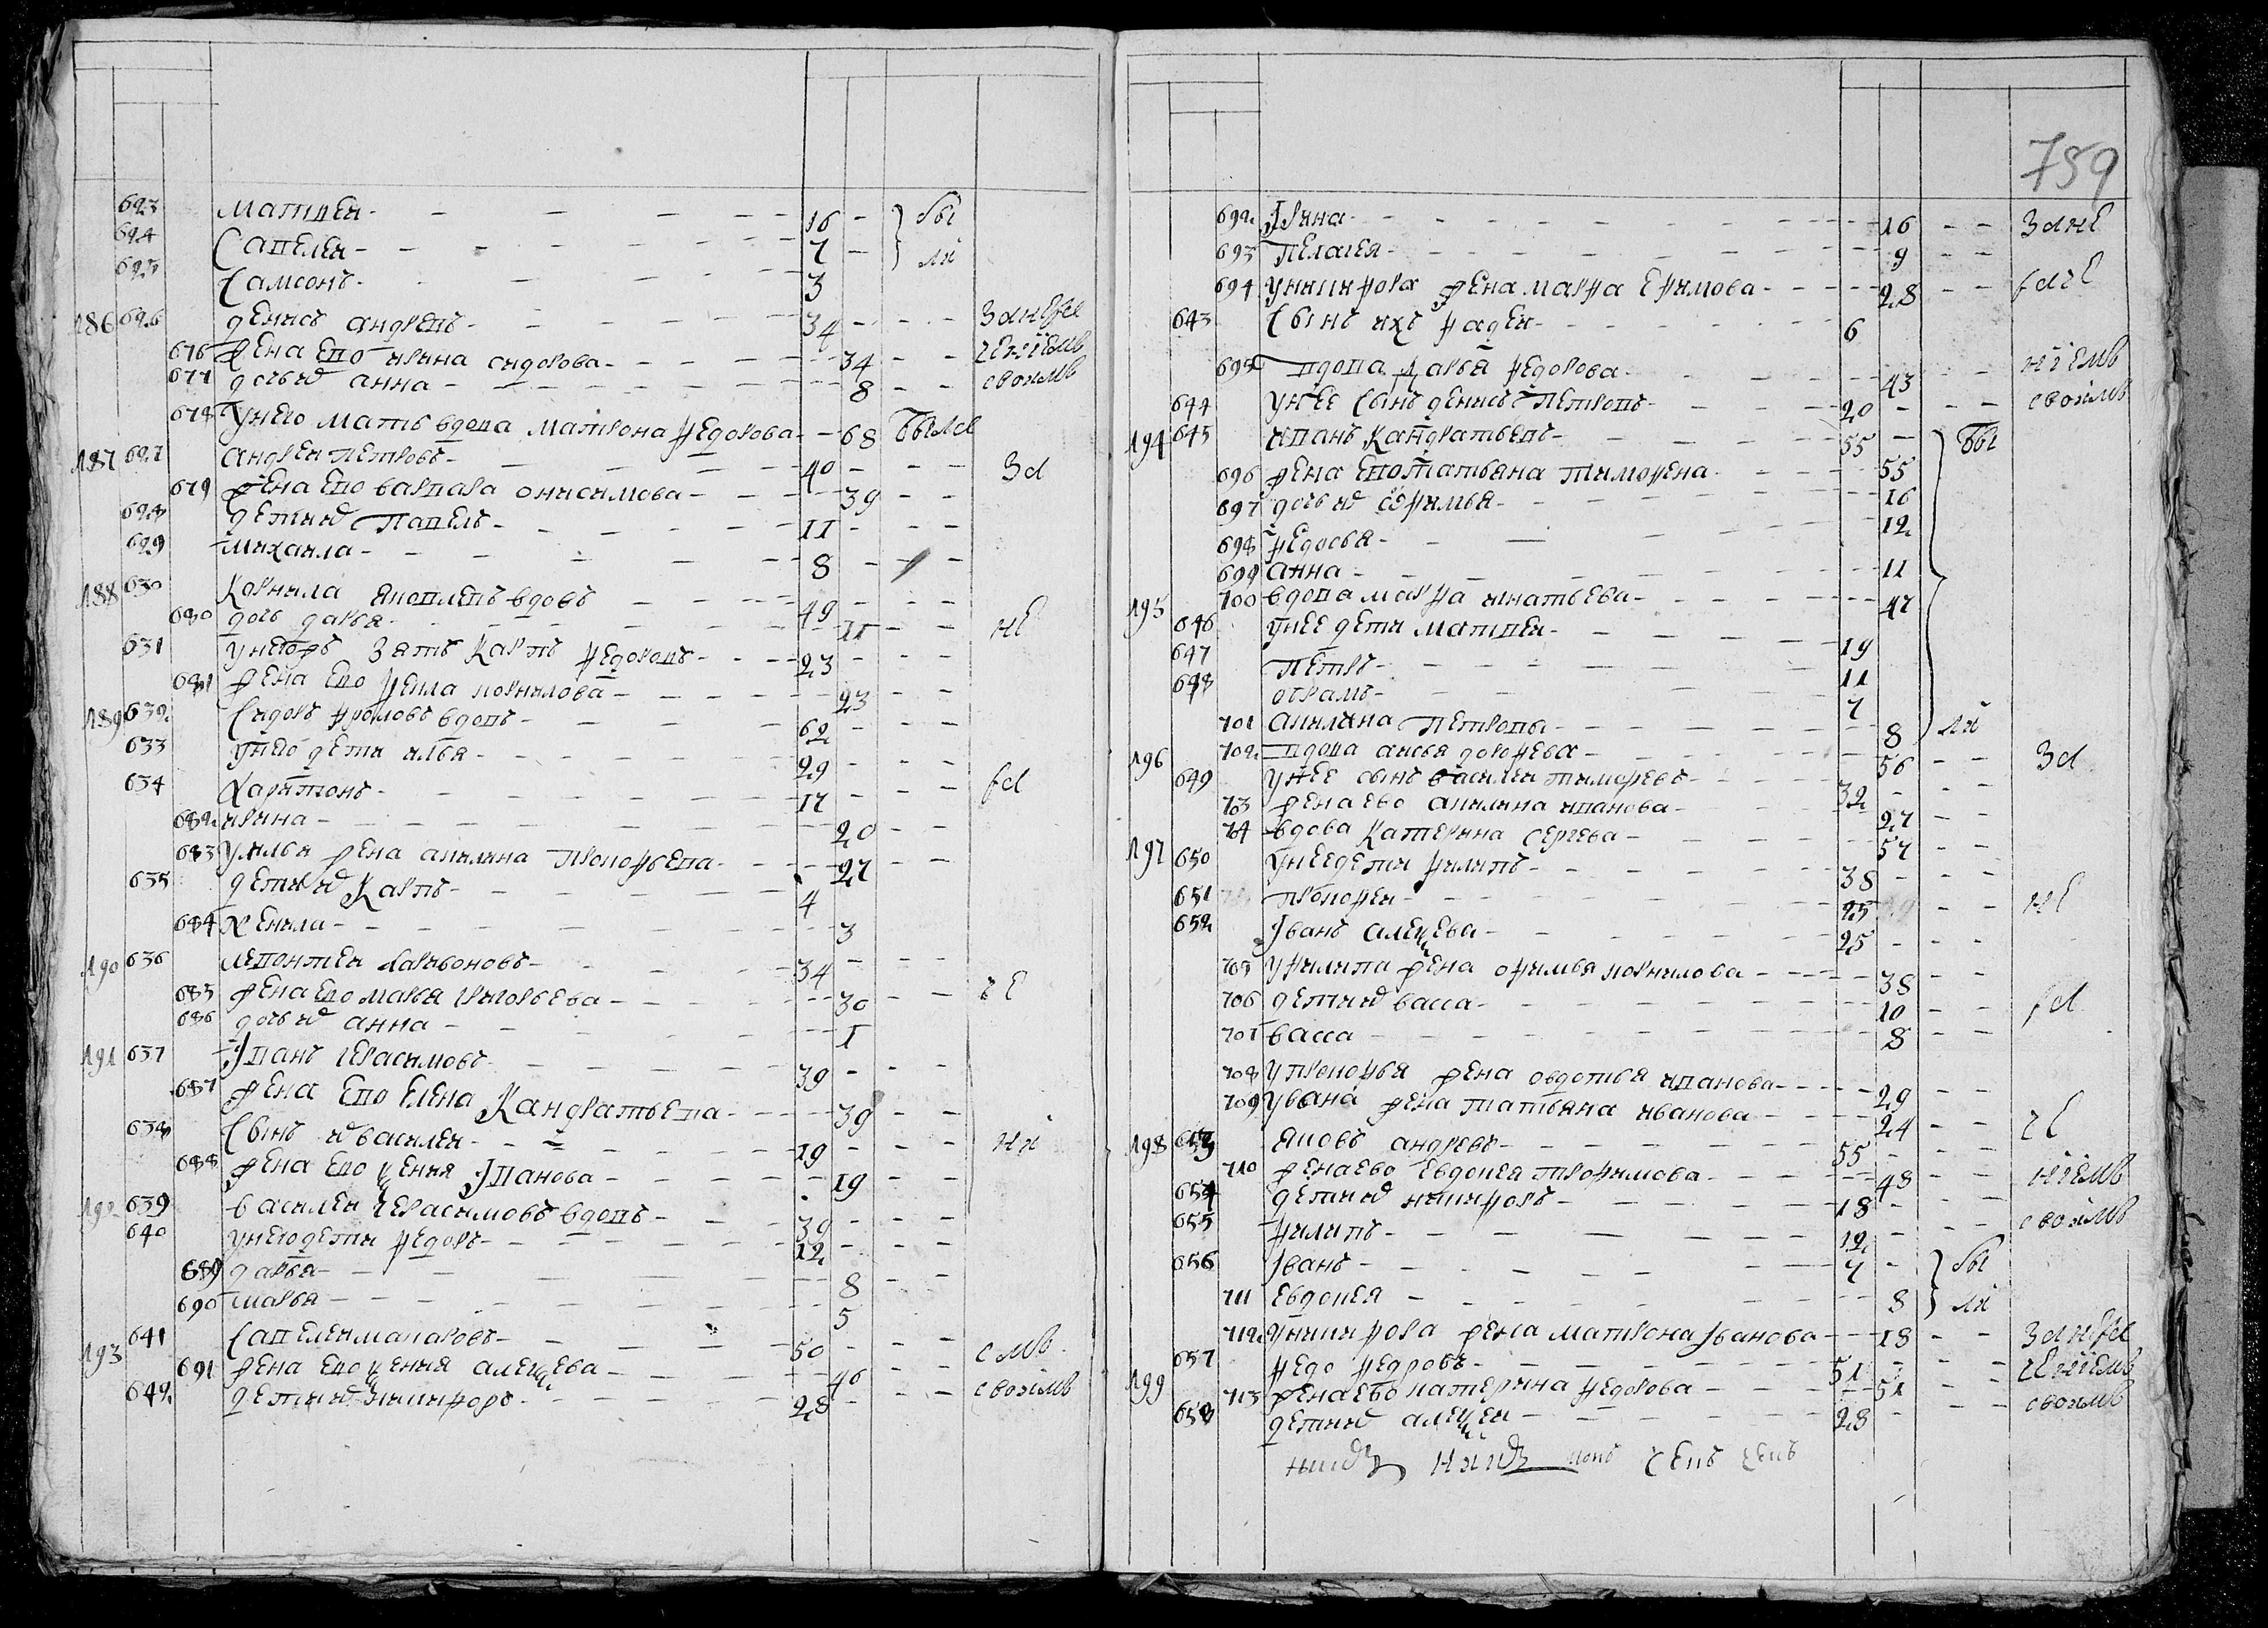 623 Матвеи - - - 16 - } бы
624 Савелеи - - - 7 - } ли
625 Самсонъ - - - 3
186 626 Денисъ андреевъ - - - 34 - - - занеБе
676 жена ево ирина сидорова - - - 34 - -
677 дочь их анна - - - 8 - - своимъ
678 Унего мать вдова матрона федорова - - 68 была
187 627 андреи петровъ - - - 40 - - - За
679 жена ево варвара онисимова - - - 39 - -
628 дети их павелъ - - - 11 - - -
629 михаила - - - 8 - - -
188 630 Корнила яковлевъ вдовъ - - - 49 - - -
680 дочь дарья - - - 11 - - не
631 унегожъ зять Карпъ федоровъ - - - 23 - - -
681 жена ево фекла корнилова - - - 23 - -
189 632 Сидоръ фроловъ вдовъ - - - 62 - - -
633 унего дети илья - - - 29 - - -
634 Харитонъ - - - 17 - - -
682 ирина - - - 20 - -
683 Уильи жена акилина прокофьева - - - 27 - -
635 дети их Карпъ - - - 4
684 Хенила - - - 3
190 636 Левонтеи Ларивоновъ - - - 34 - - -
685 жена ево марья григорьева - - - 30 - - ге
686 дочь их анна - - - 1
191 637 Iванъ герасимовъ - - - 39 - - -
687 жена ево Елена Кандратьева - - - 39 - -
638 Сынъ их василеи - - - 19 - - - ни
688 жена ево ксенья Iванова - - - 19 - -
192 639 василеи герасимовъ вдовъ - - - 39 - - -
640 унего дети федоръ - - - 12 - - -
689 дарья - - - 8 - -
690 марья - - - 5
193 641 Савелеи макаровъ - - - 50 - - - с мъ
691 жена ево ксенья алексеева - - - 46 - -
642 дети их никифоръ - - - 28 - - - своимъ
759
692 Iрина - - - 16 - - Зане
693 Пелагея - - - 9 - -
694 Уникифора жена марфа Ефимова - - - 28 - -
643 Сынъ ихъ фадеи - - - 6
695 вдова дарья федорова - - - 43 - -
644 Унее Сынъ денисъ Петровъ - - - 20 - - - своимъ
194 645 иванъ Кандратьевъ - - - 55 - } бы
696 жена ево татьяна тимофеева - - - 55
697 дочь их ефимья - - - 16
698 федосья - - - 12
699 анна - - - 11
195 700 вдова марфа игнатьева - - - 47
646 Унее дети матвеи - - - 19
647 петръ - - - 11
648 абрамъ - - - 7
701 акилина Петрова - - - 8 } ли
196 702 вдова анисья дорофеева - - - 56 - - За
649 Унее сынъ василеи тимофеевъ - - - 32 - - -
703 жена ево акилина иванова - - - 27 - -
197 704 вдова Катерина Сергеева - - - 57 - -
650 Унее дети филипъ - - - 38 - - -
651 прокофеи - - - 25 - - не
652 Iванъ алексеевъ - - - 25 - - -
705 Уфилипа жена офимья корнилова - - - 38 - -
706 дети их васса - - - 10 - -
707 васса - - - 8 - -
708 Упрокофья жена овдотья иванова - - - 29 - -
709 Увана жена татьяна иванова - - - 24 - - ге
198 653 яковъ андреевъ - - - 55 - - -
710 жена ево Евдокея трофимова - - - 48 - -
654 дети их никифоръ - - - 18 - - -
655 филипъ - - - 12 - - - своимъ
656 Iванъ - - - 7 - } бы
711 Евдокея - - - 8 } ли
712 Уникифора жена матрона Iванова - - - 18 - -
199 657 Федо федоровъ - - - 51 - - -
713 жена ево катерина федорова - - - 51 - - своимъ
658 дети их алексеи - - - 28 -